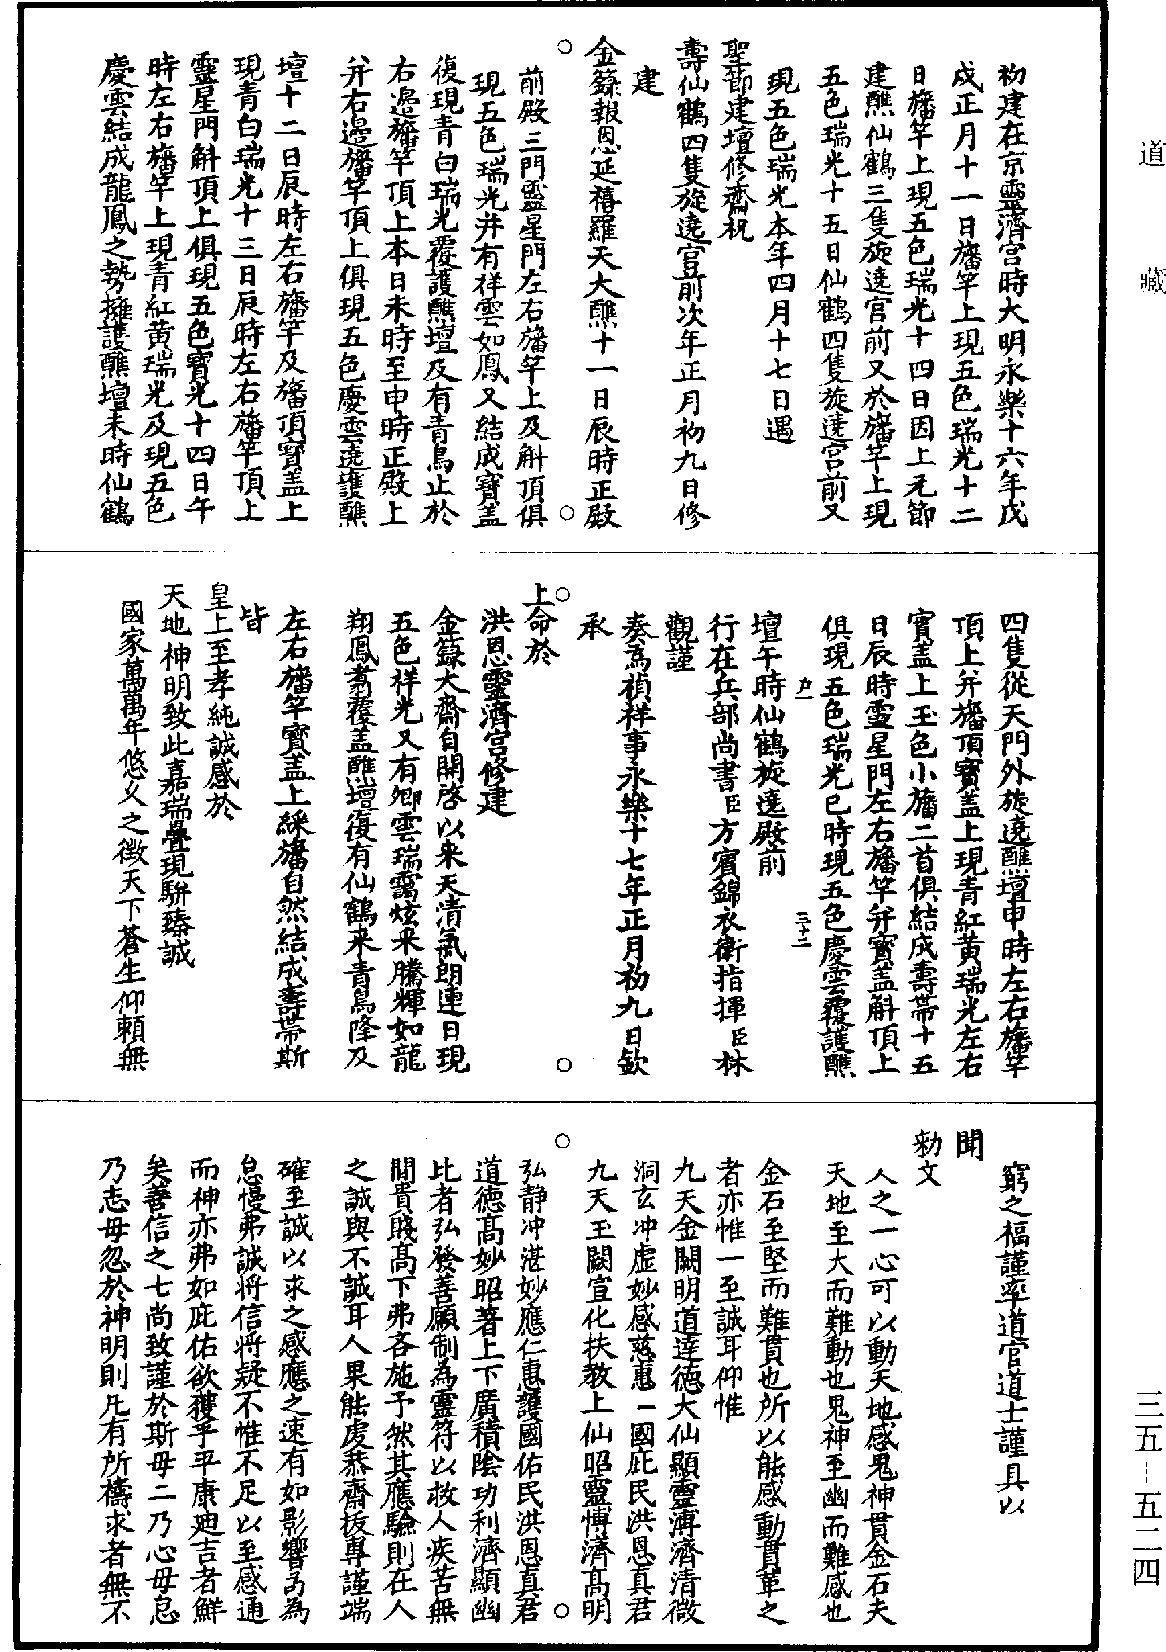 道藏
初建在京靈濟宮時大明永樂十六年戊
戍正月十一日旛竿上現五色瑞光十二
日旛竿上現五色瑞光十四日因上元節
建醮仙鶴三隻旋遶宮前又於旛竿上現
五色瑞光十五日仙鶴四隻旋遶宮前又
現五色瑞光本年四月十七日遇
聖節建壇修齋祝
壽仙鶴四隻旋遶宮前次年正月初九日修
建
金籙報恩延禧羅天大醮十一日辰時正殿
前殿三門靈星門左右旛竿上及斛頂俱
現五色瑞光并有祥雲如鳳又結成寶蓋
復現青白瑞光覆護醮壇及有青鳥止於
右邊旛竿頂上本日未時至申時正殿上
并右邊旛竿頂上俱現五色慶雲遶護醮
壇十二日辰時左右旛竿及旛頂寶蓋上
現青白瑞光十三日辰時左右旛竿頂上
靈星門斛頂上俱現五色寶光十四日午
時左右旛竿上現青紅黃瑞光及現五色
慶雲結成龍鳳之勢擁護醮壇未時仙鶴
四隻從天門外旋遶醮壇申時左右旛竿
頂上并旛頂寶蓋上現青紅黃瑞光左右
寶蓋上玉色小旛二首俱結成壽帶十五
日辰時靈星門左右旛竿并寶蓋斛頂上
俱現五色瑞光巳時現五色慶雲覆護醮
三十二
壇午時仙鶴旋遶殿前
行在兵部尚書臣方賓錦衣衛指揮臣林
觀謹
奏為禎祥事永樂十七年正月初九日欽
承
上命於
洪恩靈濟宮修建
金籙大齋自開啓以來天清氣朗連日現
五色祥光又有卿雲瑞靄炫采騰輝如龍
翔鳳翥覆蓋醮壇復有仙鶴來青鳥降及
左右旛竿寶蓋上綵旛自然結成壽帶斯
皆
皇上至孝純誠感於
天地神明致此嘉瑞疊現駢臻誠
國家萬萬年悠久之徵天下蒼生仰賴無
窮之福謹率道官道士謹具以
聞
勑文
人之一心可以動天地感鬼神貫金石夫
天地至大而難動也鬼神至幽而難感也
金石至堅而難貫也所以能感動貫革之
者亦惟一至誠耳仰惟
九天金闕明道達德大仙顯靈溥濟清微
洞玄冲虛妙感慈惠一國庇民洪恩真君
九天玉闕宣化扶教上仙昭靈博濟高明
弘靜冲湛妙應仁惠護國佑民洪恩真君
道德高妙昭著上下廣積陰功利濟顯幽
比者弘發善願制為靈符以救人疾苦無
間貴賤高下弗吝施予然其應驗則在人
之誠與不誠耳人果能虔恭齋拔專謹端
確至誠以求之感應之速有如影響為
怠慢弗誠將信將疑不惟不足以至感通
而神亦弗如庇佑欲獲乎平康迪吉者鮮
矣善信之七尚致謹於斯毋二乃心毋怠
乃志毋忽於神明則凡有所禱求者無不
三五—五二四